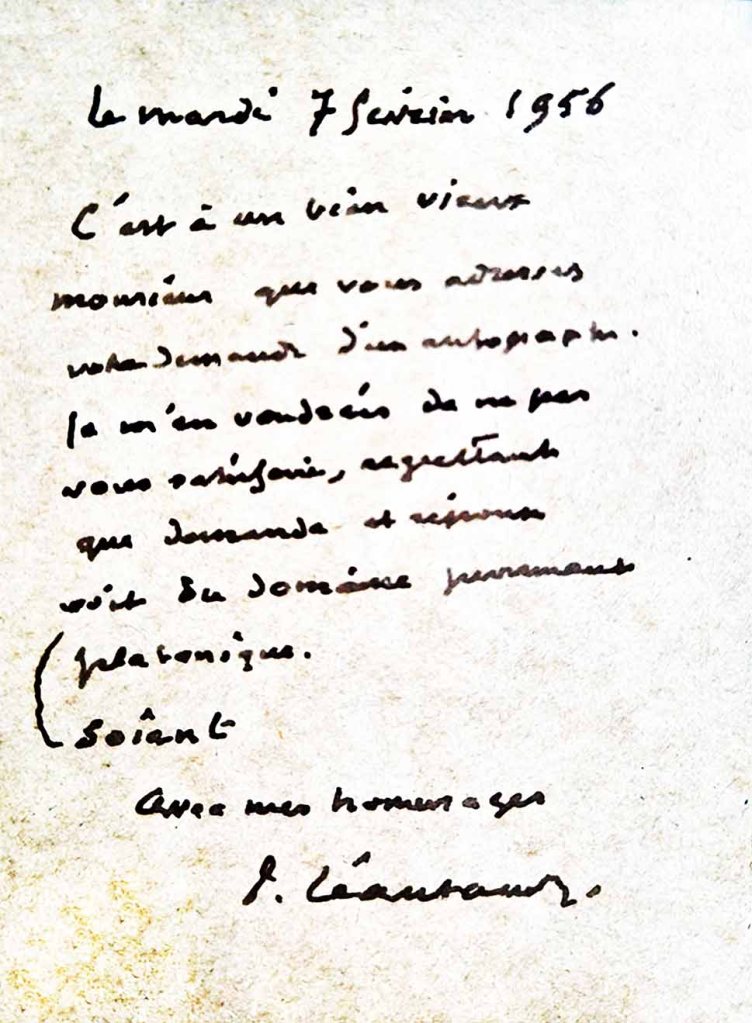 le mardi 7 février 1956
C'est à un bien vieux
monsieur que vous adresses
votre demande d'un autographe.
Je m'en voudrais de ne pas
vous satisfaire, regrettant
que demande et réponse
soit du domaine purement
platonique.
soient
Avec mes hommages
P. Léautaud.